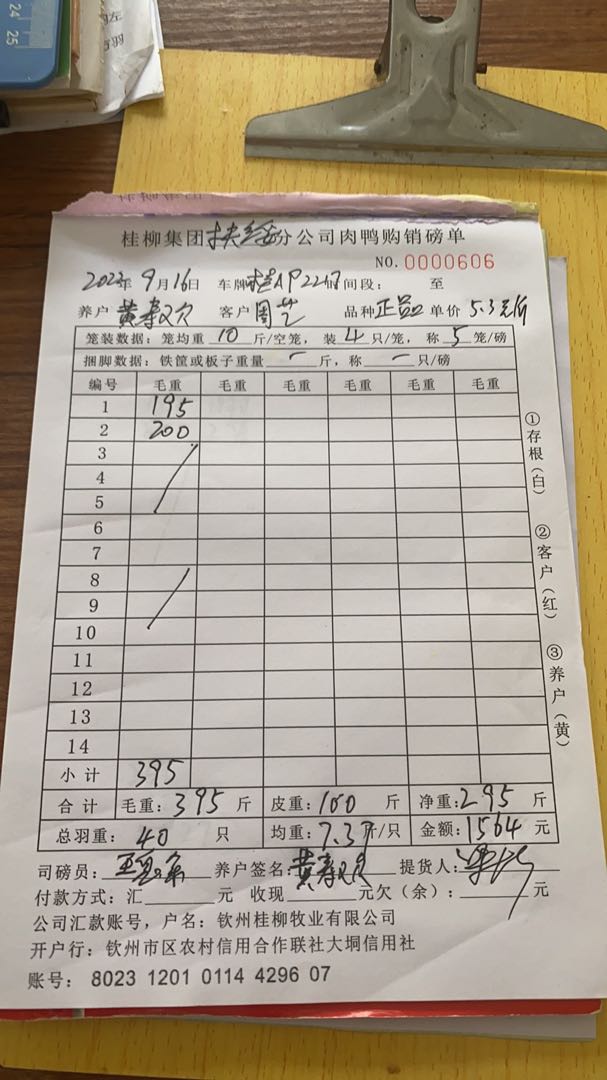 24
25
桂柳集团扶绥分公司肉鸭购销磅单
NO.0000606
2023年9月16日 车牌 时间段: 至
养户 黄 客户 周艺 品种 正品 单价 5.3元/斤
笼装数据:笼均重 10 斤/空笼,装 4 只/笼,称 5 笼/磅
捆脚数据:铁筐或板子重量 - 斤,称 - 只/磅
编号 毛重 毛重 毛重 毛重 毛重 毛重
1 195
2 200
3
4
5
6
7
8
9
10
11
12
13
14
小计 395
合计 毛重:395 斤 皮重:100 斤 净重:295 斤
总羽重: 40 只 均重:7.37斤/只 金额:1564 元
司磅员: 养户签名:黄 提货人:
付款方式:汇 元 收现 元欠(余): 元
公司汇款账号,户名:钦州桂柳牧业有限公司
开户行:钦州市区农村信用合作联社大垌信用社
账号: 8023 1201 0114 4296 07
①存根(白)
②客户(红)
③养户(黄)